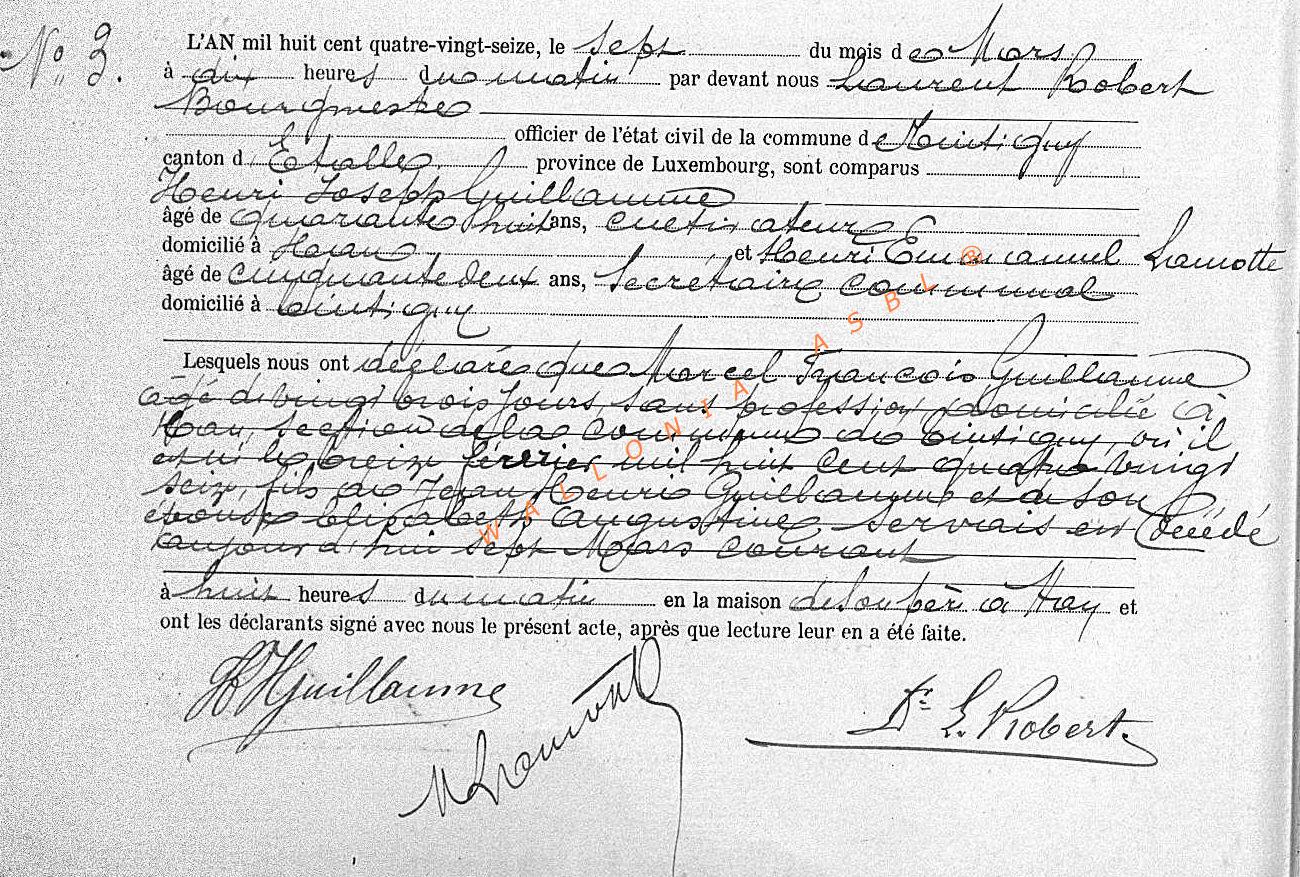 N° 3.
L'AN mil huit cent quatre-vingt-seize, le sept du mois de Mars
à dix heures du matin par devant nous Laurent Robert
Bourgmestre
officier de l'état civil de la commune de Tintigny
canton d'Etalle province de Luxembourg, sont comparus
Henri Joseph Guillaume
âgé de quarante huit ans, cultivateur
domicilié à Han et Henri Emmanuel Lamotte
âgé de cinquante deux ans, Secrétaire communal
domicilié à Tintigny
Lesquels nous ont déclaré que Marcel François Guillaume
agé de vingt trois jours, sans profession, domicilié à
Han, section de la commune de Tintigny, où il
est né le treize février mil huit cent quatre vingt
seize, fils de Jean Henri Guillaume et de son
épouse Elisabeth Augustine Servais est décédé
aujourd'hui sept Mars courant
à huit heures du matin en la maison de son père à Han et
ont les déclarants signé avec nous le présent acte, après que lecture leur en a été faite.
HJGuillaume
Lamotte
Dr L. Robert.
WALLONIA ASBL ®